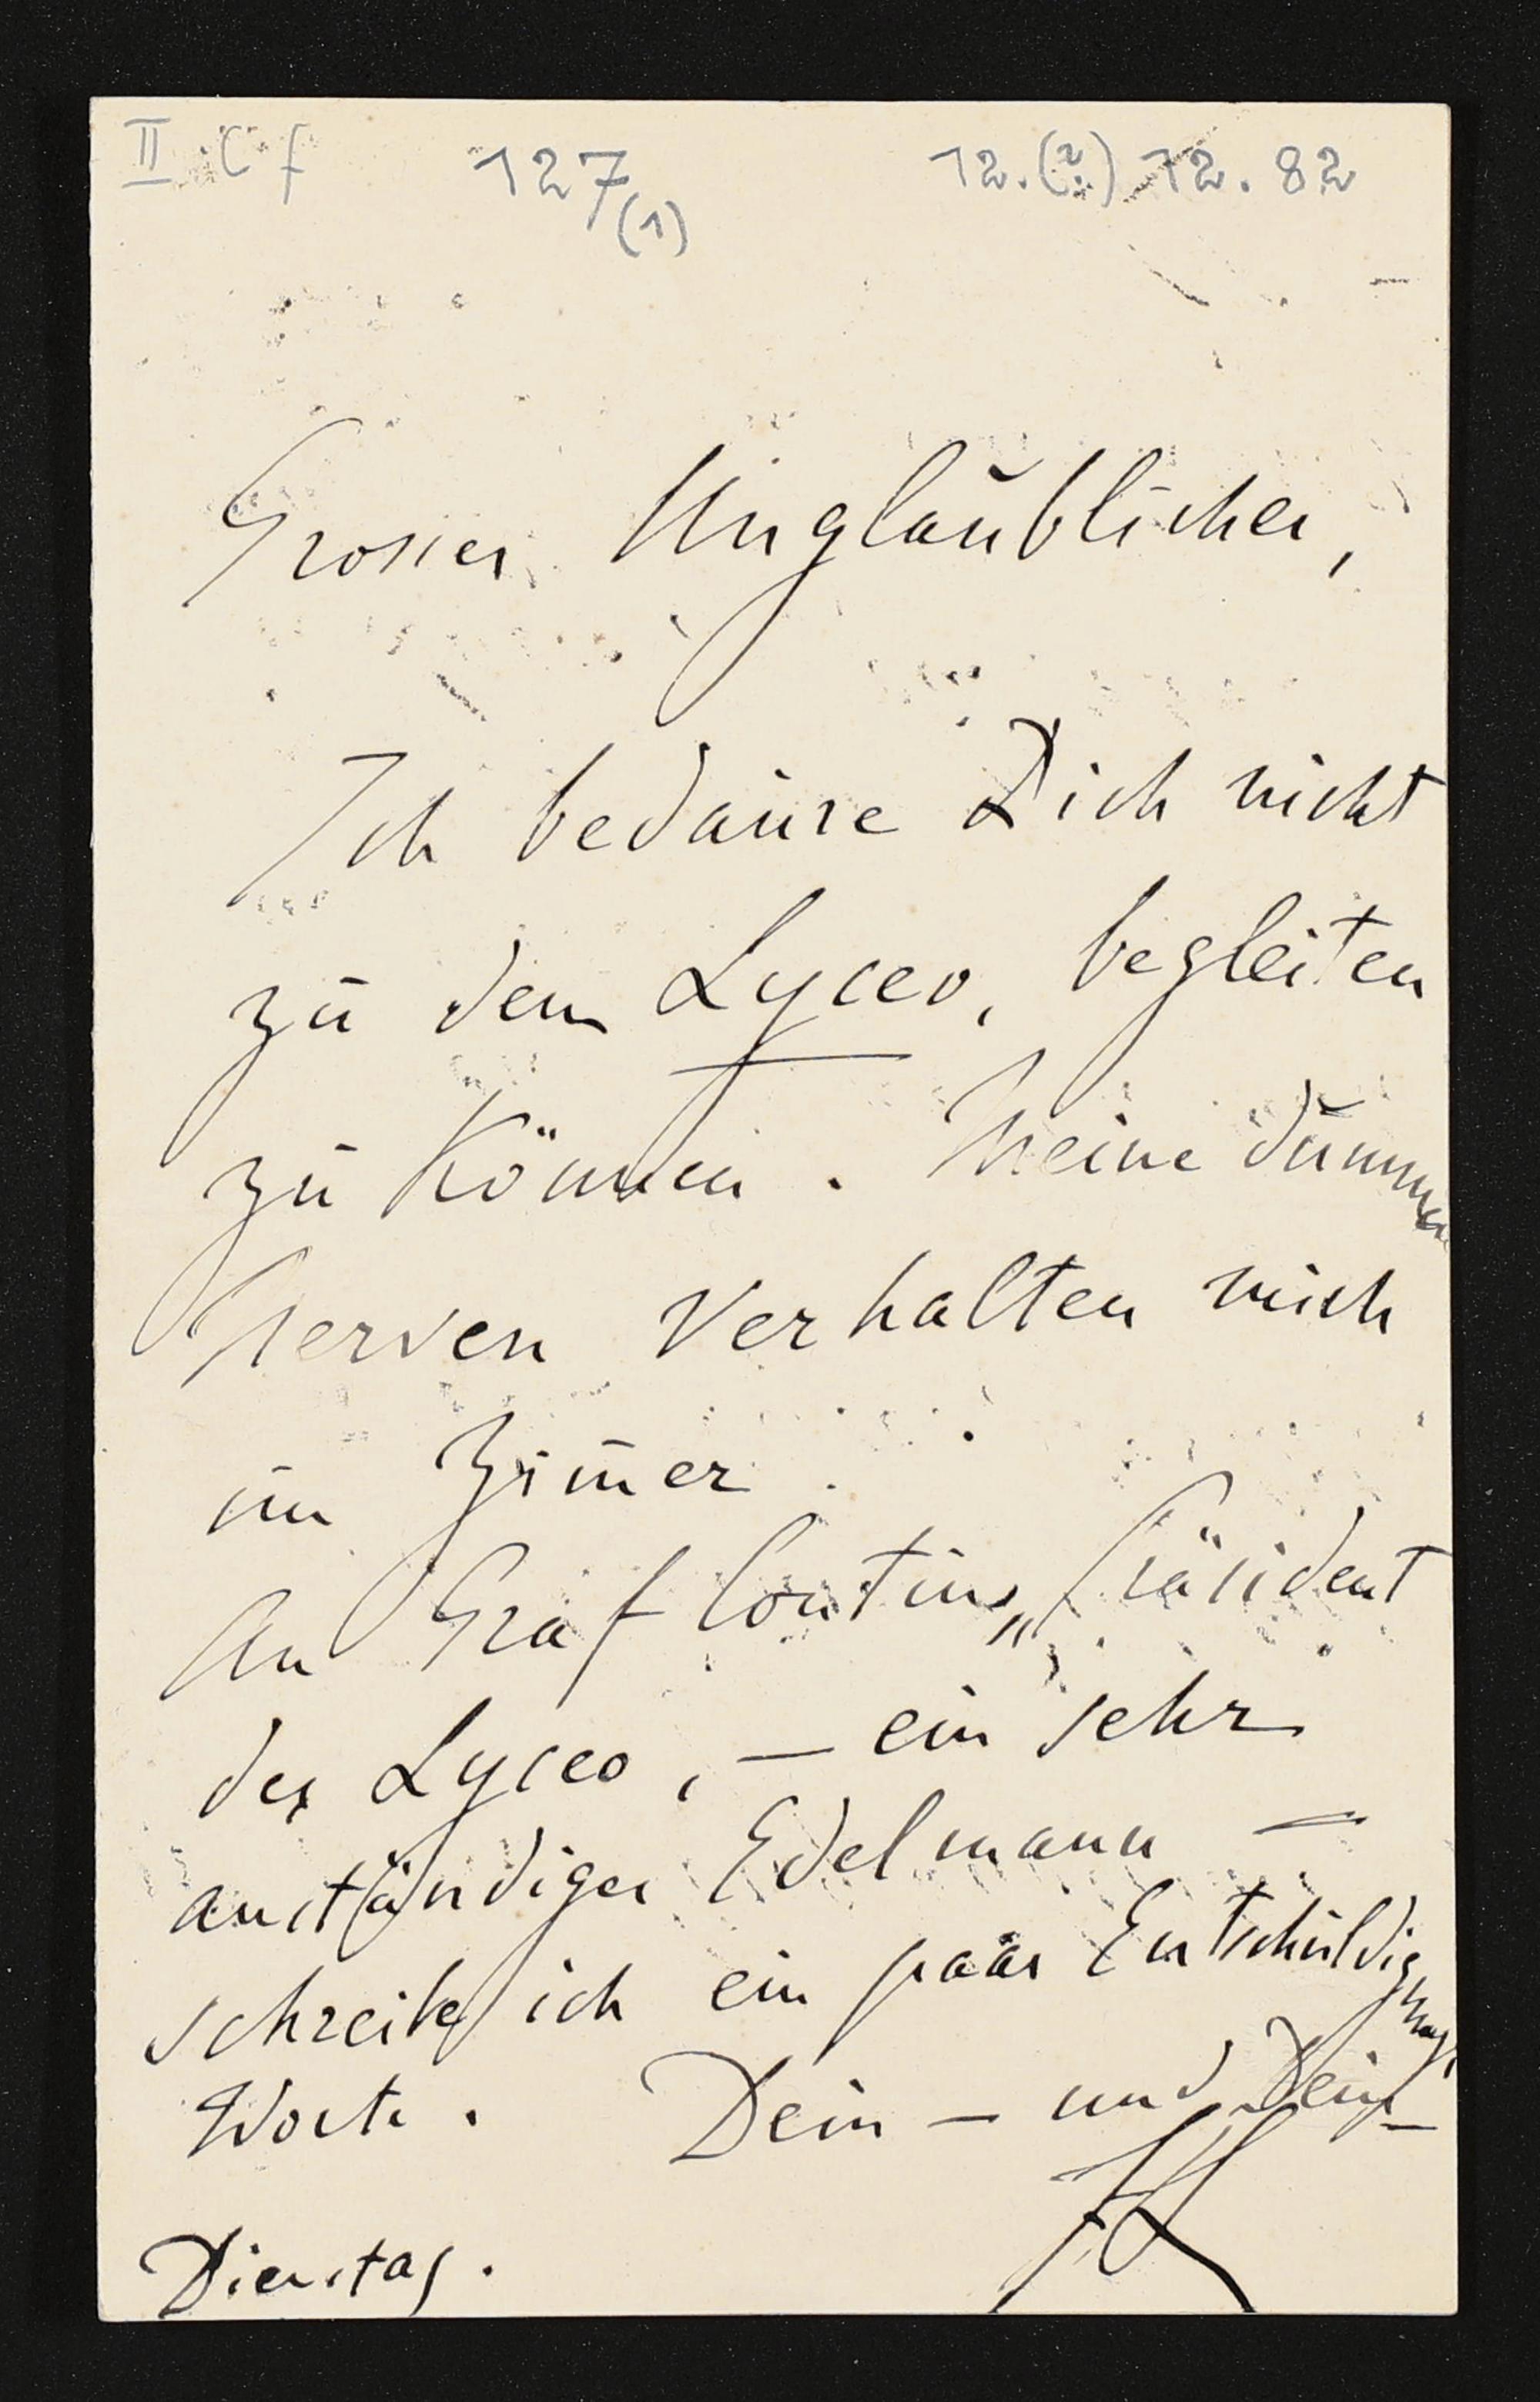 II C f 127 (1) 12.(?) 12. 82
Grosser Unglaublicher,
Ich bedaure Dich nicht
zu dem Lyceo, begleiten
zu können. Meine dummen
Nerven verhalten mich
im Zim̅er.
An Graf Contin, „Präsident
des Lyceo, — ein sehr
anständiger Edelmann —
schreibe ich ein paar Entschuldigungs
Worte. Dein — und Dein —
FL
Dienstag.